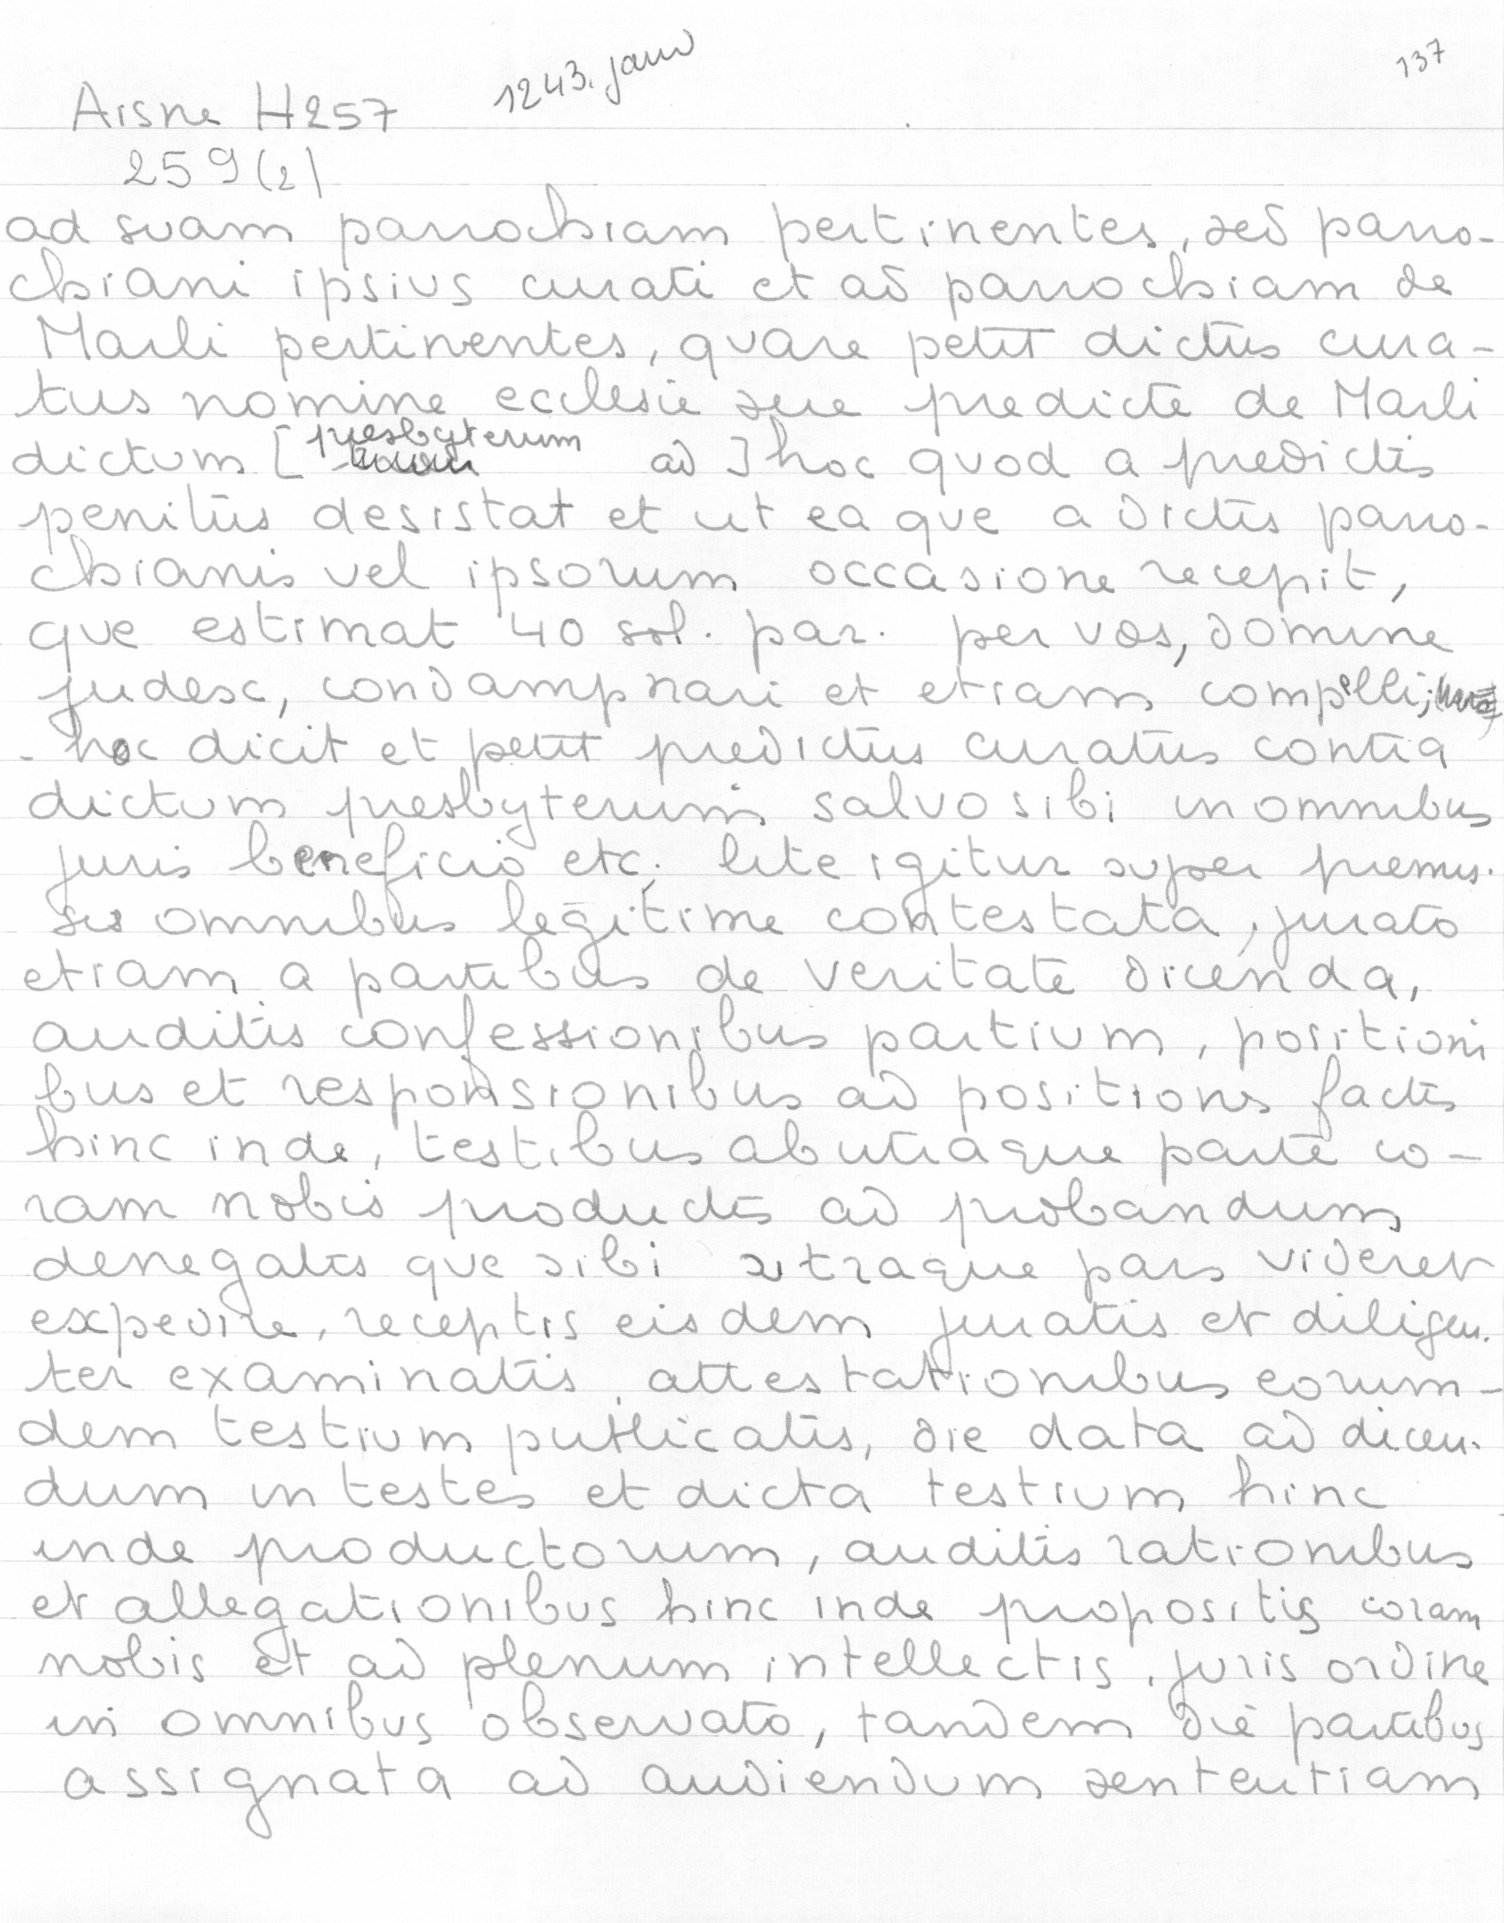 137
1243. janv
Aisne H257
259 (2)
ad suam parrochiam pertinentes, sed parro-
chiani ipsius curati et ad parrochiam de
Marli pertinentes, quare petit dictus cura-
tus nomine ecclesie sue predicte de Marli
dictum [presbyterum ad] hoc quod a predictis
penitus desistat et ut ea que a dictis parro-
chianis vel ipsorum occasione recepit,
que estimat 40 sol. par. per vos, domine
judex, condampnari et etiam compelli;
hoc dicit et petit predictus curatus contra
dictum presbyterum salvo sibi in omnibus
juris beneficio etc; lite igitur super premis-
sis omnibus legitime contestata, jurato
etiam a partibus de veritate dicenda,
auditis confessionibus partium, positioni
bus et responsionibus ad positiones factis
hinc inde, testibus ab utraque parte co-
ram nobis productis ad probandum
denegatis que sibi utraque pars videret
expedire, receptis eisdem juratis et diligen-
ter examinatis, attestationibus eorum-
dem testium publicatis, die data ad dicen-
dum in testes et dicta testium hinc
inde productorum, auditis rationibus
et allegationibus hinc inde propositis coram
nobis et ad plenum intellectis, juris ordine
in omnibus observato, tandem die partibus
assignata ad audiendum sententiam